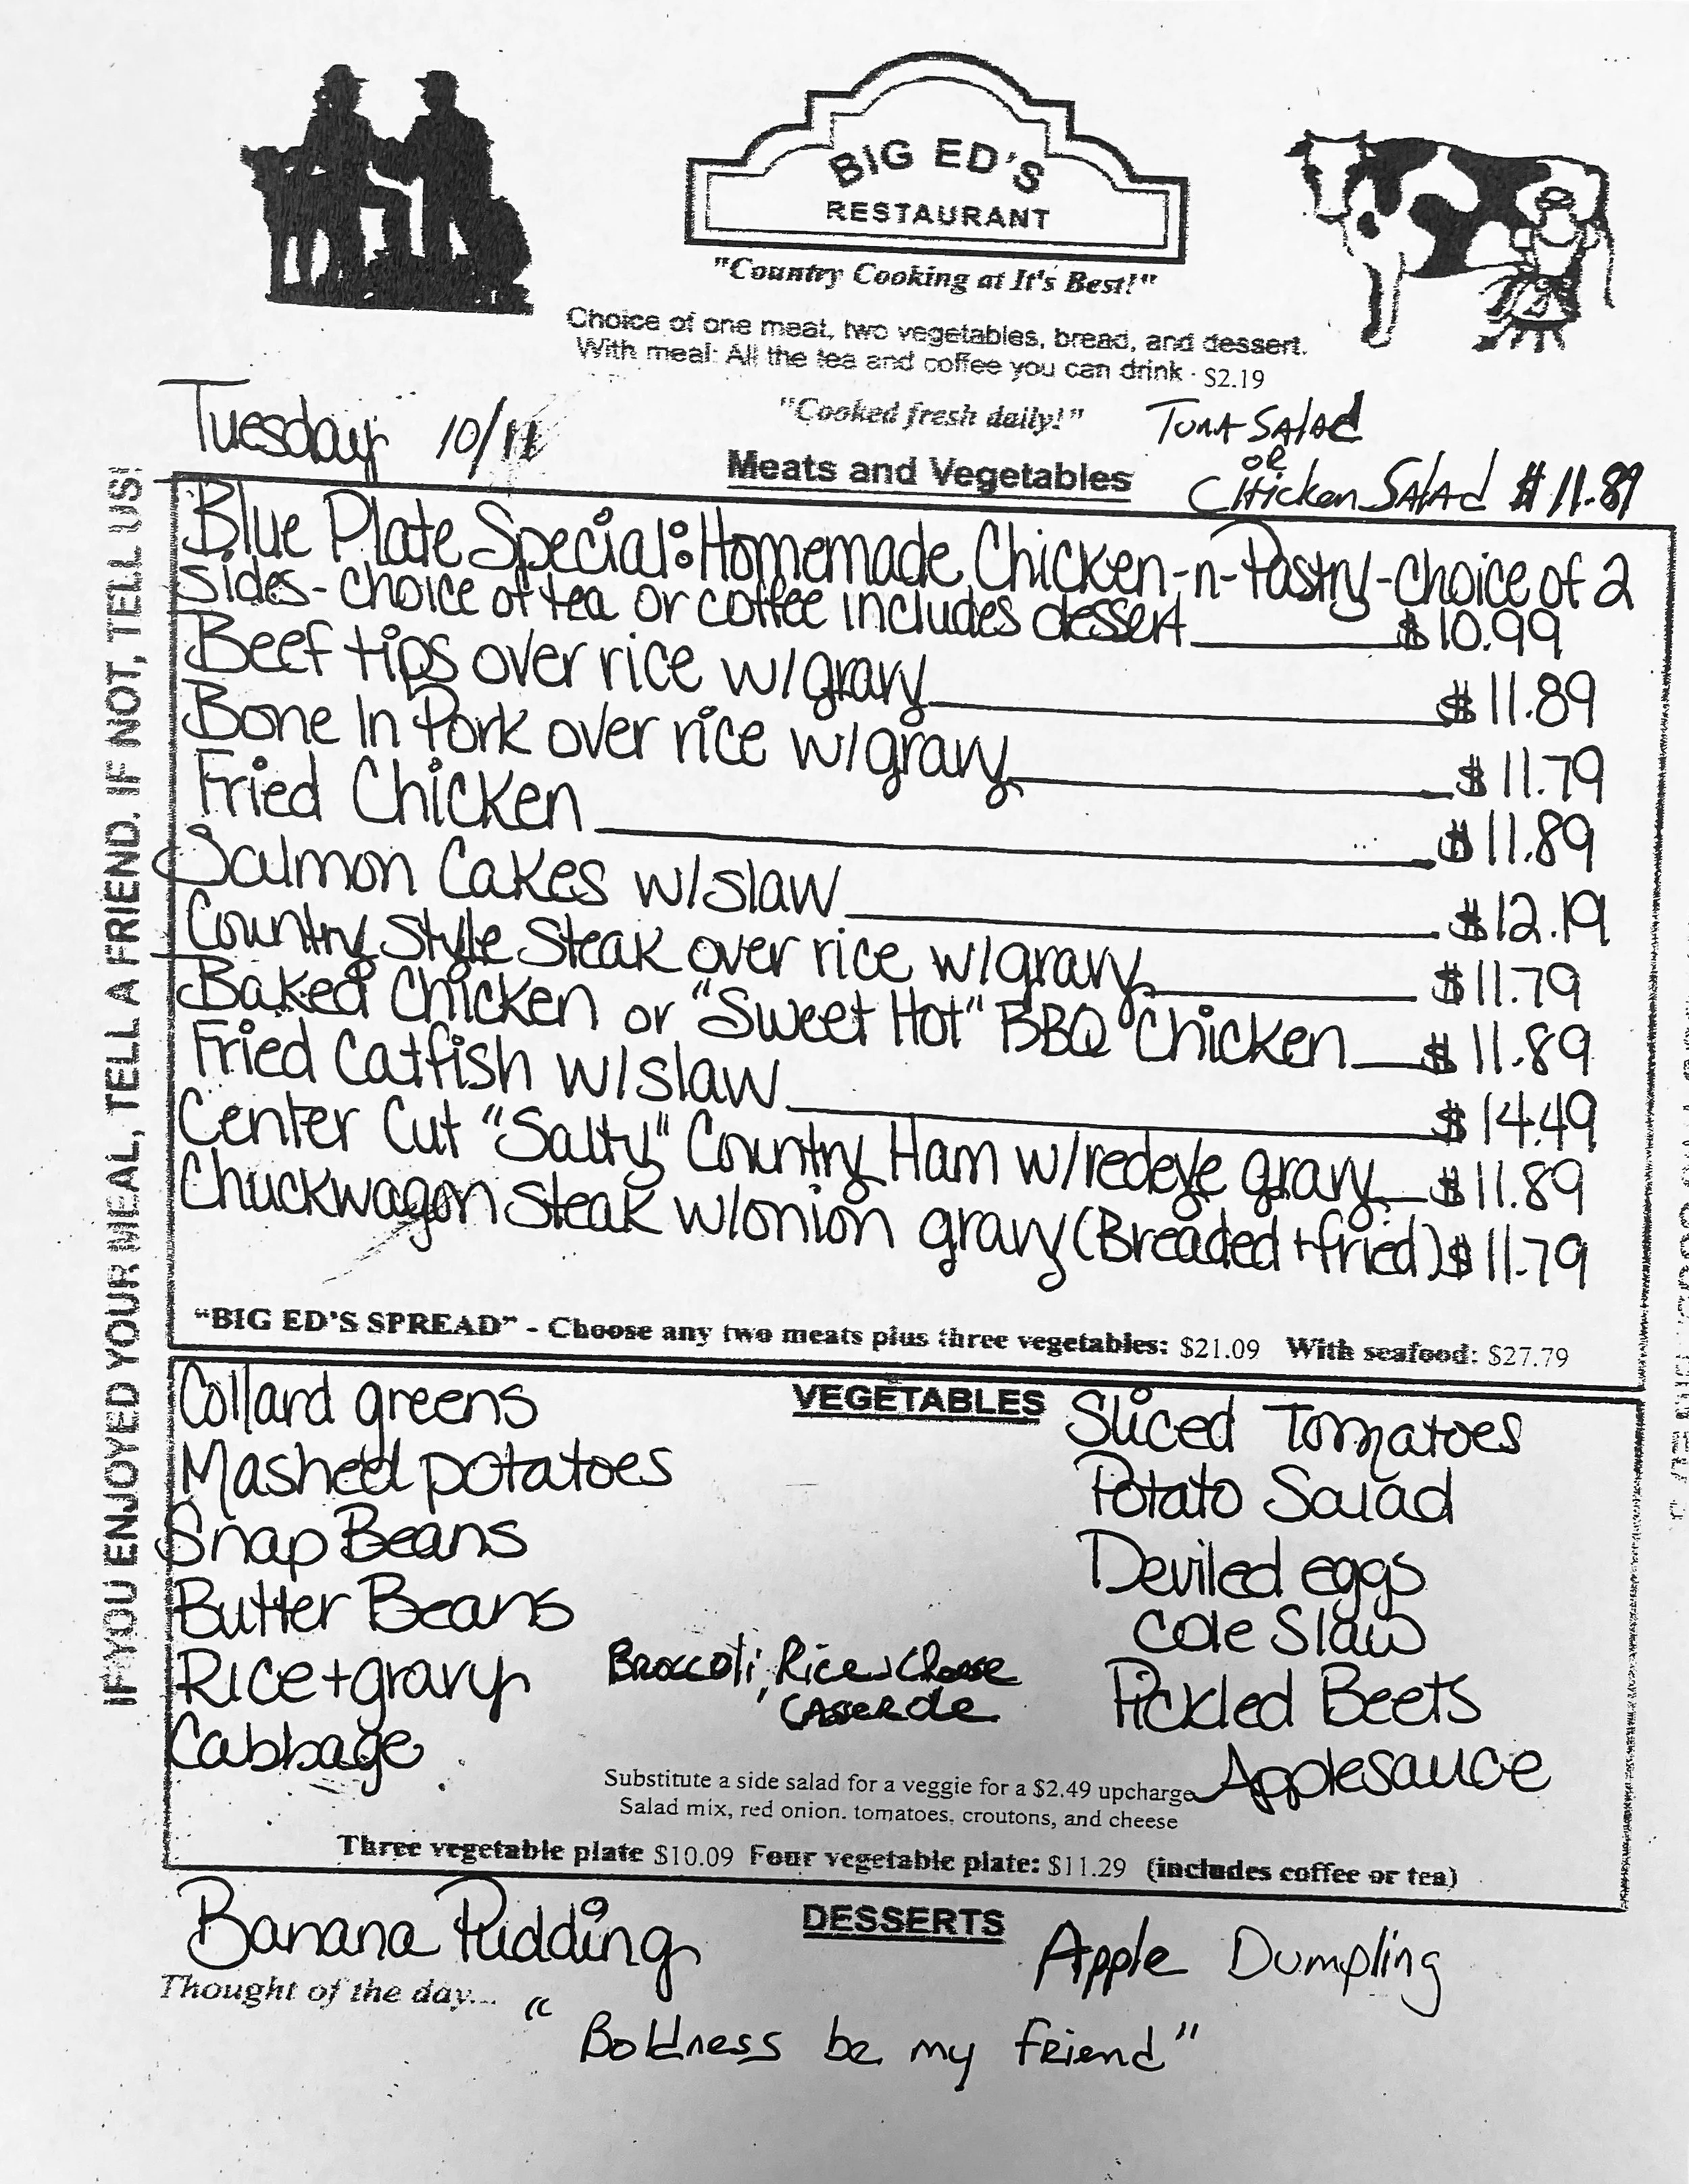 BIG ED'S
RESTAURANT
"Country Cooking at It's Best!"
Choice of one meat, two vegetables, bread, and dessert.
With meal: All the tea and coffee you can drink - $2.19
"Cooked fresh daily!"
Tuesday 10/11
Tuna Salad
or
Chicken Salad $11.89
Meats and Vegetables
IF YOU ENJOYED YOUR MEAL, TELL A FRIEND. IF NOT, TELL US!
Blue Plate Special: Homemade Chicken-n-Pastry-choice of 2
sides-choice of tea or coffee includes dessert $10.99
Beef tips over rice w/gravy $11.89
Bone In Pork over rice w/gravy $11.79
Fried Chicken $11.89
Salmon Cakes w/slaw $12.19
Country Style Steak over rice w/gravy $11.79
Baked Chicken or "Sweet Hot" BBQ Chicken $11.89
Fried Catfish w/slaw $14.49
Center Cut "Salty" Country Ham w/redeye gravy $11.89
Chuckwagon Steak w/onion gravy (Breaded + fried) $11.79
"BIG ED'S SPREAD" - Choose any two meats plus three vegetables: $21.09 With seafood: $27.79
VEGETABLES
Collard greens
Mashed potatoes
Snap Beans
Butter Beans
Rice + gravy
Cabbage
Broccoli, Rice, Cheese
Casserole
Sliced Tomatoes
Potato Salad
Deviled eggs
Cole Slaw
Pickled Beets
Applesauce
Substitute a side salad for a veggie for a $2.49 upcharge
Salad mix, red onion. tomatoes, croutons, and cheese
Three vegetable plate $10.09 Four vegetable plate: $11.29 (includes coffee or tea)
DESSERTS
Banana Pudding
Apple Dumpling
Thought of the day...
"Boldness be my friend"